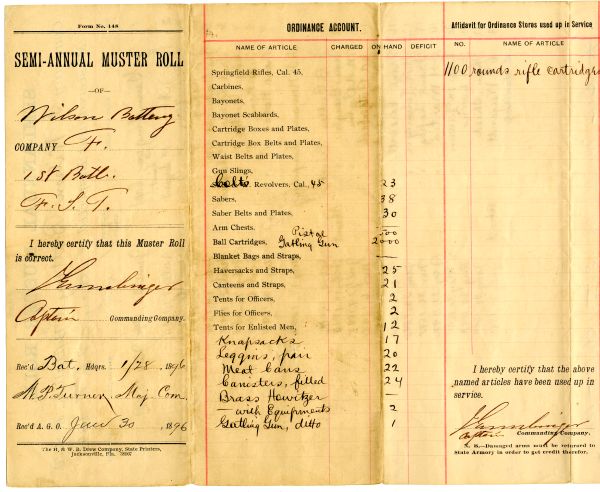 Form No. 148
SEMI-ANNUAL MUSTER ROLL
—OF—
Wilson Battery
COMPANY F.
1st Batt.
F. S. T.
I hereby certify that this Muster Roll
is correct.
Captain Commanding Company.
Rec'd Bat. Hdqrs. 1/28 1896
M. P. Turner, Maj. Com.
Rec'd A. G. O. Jany 30, 1896
The H. & W. B. Drew Company, State Printers,
Jacksonville, Fla.
ORDINANCE ACCOUNT.
NAME OF ARTICLE CHARGED ON HAND DEFICIT
Springfield Rifles, Cal. 45,
Carbines,
Bayonets,
Bayonet Scabbards,
Cartridge Boxes and Plates,
Cartridge Box Belts and Plates,
Waist Belts and Plates,
Gun Slings,
Colts Revolvers, Cal. 45 23
Sabers, 38
Saber Belts and Plates, 30
Arm Chests, —
Pistol 500
Ball Cartridges, Gatling Gun 2000
Blanket Bags and Straps, —
Haversacks and Straps, 25
Canteens and Straps, 21
Tents for Officers, 2
Flies for Officers, 2
Tents for Enlisted Men, 12
Knapsacks 17
Leggins, pair 20
Meat Cans 22
Canisters, filled 24
Brass Howitzer
— with Equipments 2
Gatling Gun, ditto 1
Affidavit for Ordinance Stores used up in Service
NO. NAME OF ARTICLE
1100 rounds rifle cartridges
I hereby certify that the above
named articles have been used up in
service.
Captain Commanding Company.
N. B.—Damaged arms must be returned to
State Armory in order to get credit therefor.